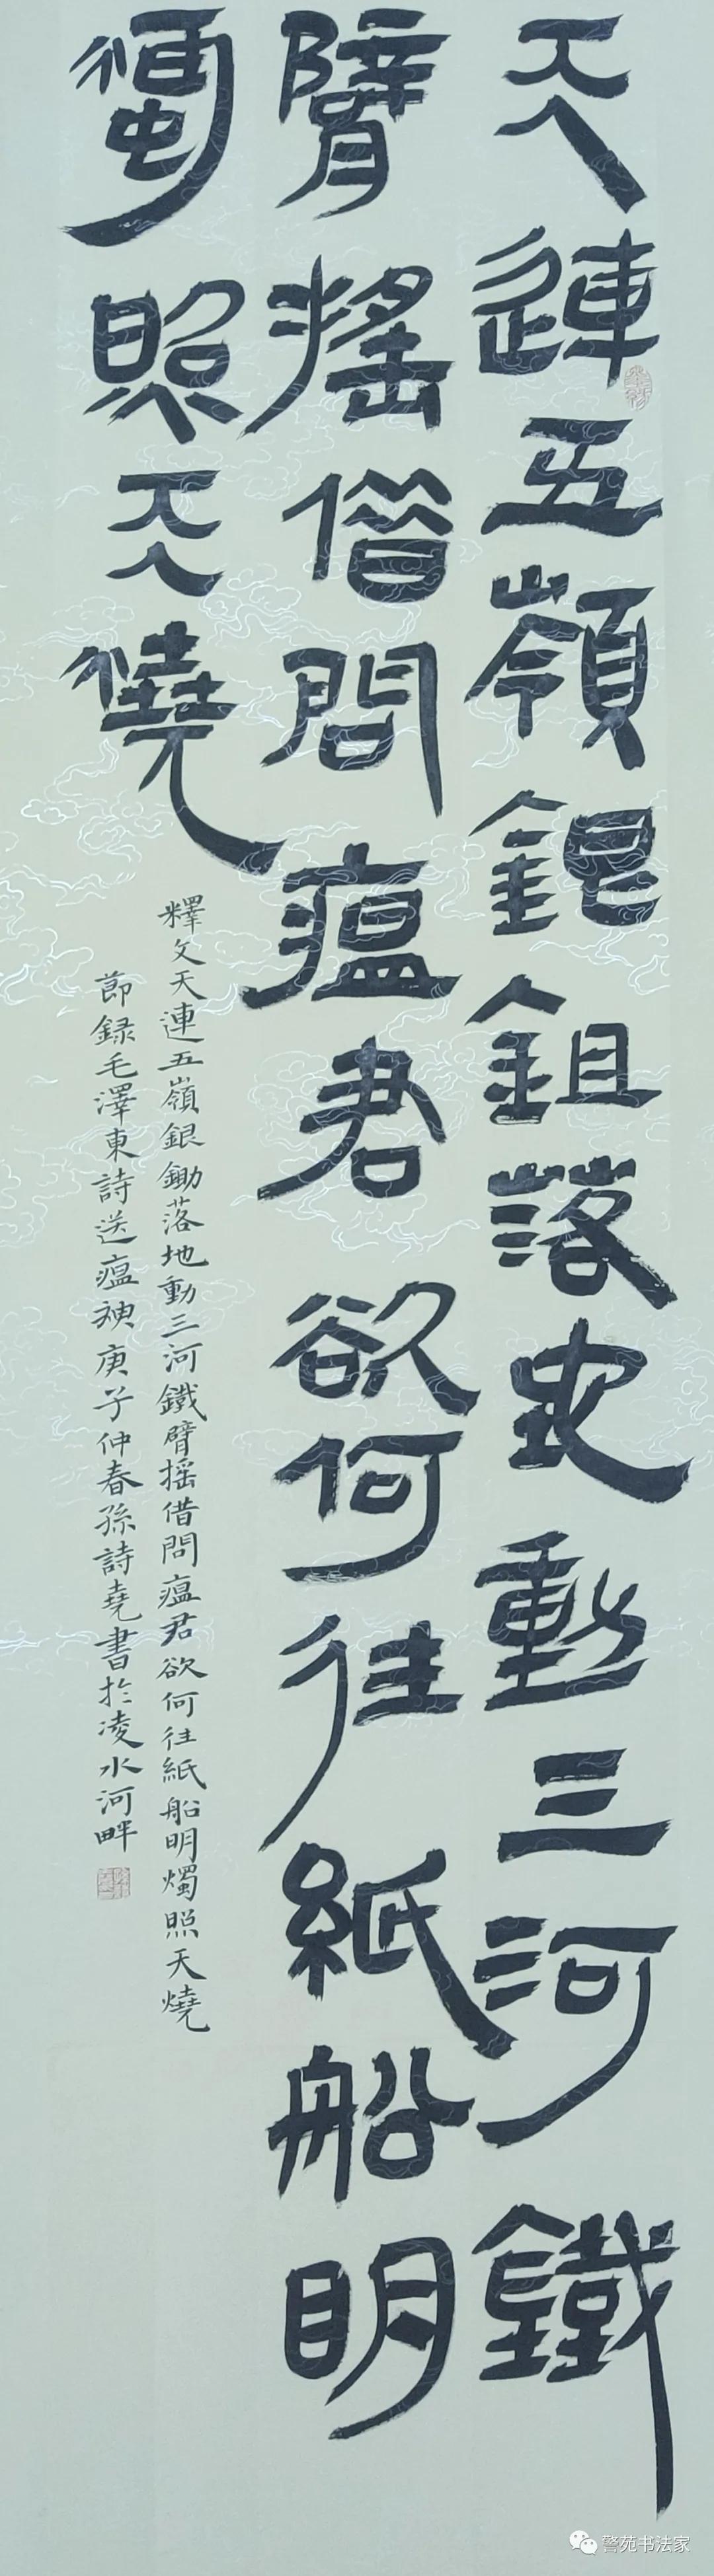 天連五嶺銀鉏落地動三河鐵
臂搖借問瘟君欲何往紙船明
燭照天燒
釋文天連五嶺銀鋤落地動三河鐵臂摇借問瘟君欲何往紙船明燭照天燒
節録毛澤東詩送瘟神庚子仲春孫詩堯書於凌水河畔
警苑书法家